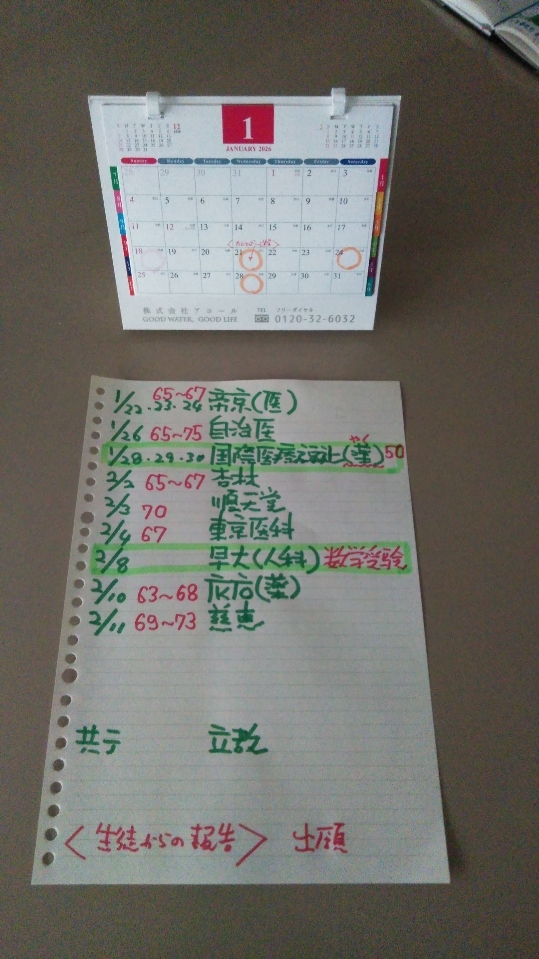 1
JANUARY 2026
Sunday Monday Tuesday Wednesday Thursday Friday Saturday
28 29 30 31 1 2 3
4 5 6 7 8 9 10
11 12 13 14 15 16 17
18 19 20 21 22 23 24
25 26 27 28 29 30 31
株式会社アコール
GOOD WATER, GOOD LIFE
TEL フリーダイヤル
0120-32-6032
1/22.23.24 65~67 帝京(医)
1/26 65~75 自治医
1/28.29.30 国際医療福祉(薬)50
やく
2/2 65~67 杏林
2/3 70 順天堂
2/4 67 東京医科
2/8 早大(人科) 数学受験
2/10 63~68 慶応(薬)
2/11 69~73 慈恵
共テ 立教
<生徒からの報告> 出願